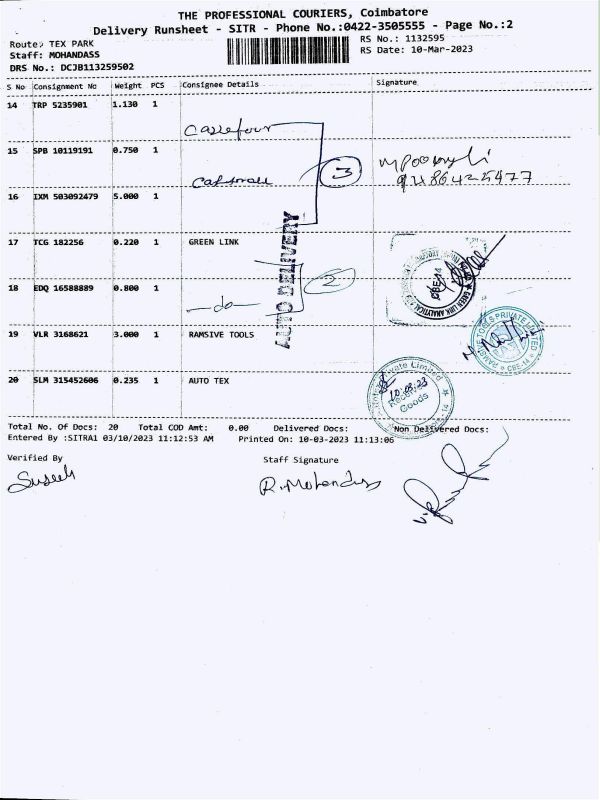 THE PROFESSIONAL COURIERS, Coimbatore
Delivery Runsheet - SITR - Phone No.:0422-3505555 - Page No.:2
Route: TEX PARK
RS No.: 1132595
Staff: MOHANDASS
RS Date: 10-Mar-2023
DRS No.: DCJB113259502
S No Consignment No Weight PCS Consignee Details Signature
14 TRP 5235901 1.130 1
Carrefour
15 SPB 10119191 0.750 1
3
9486425477
16 IXM 503092479 5.000 1
AUTO DELIVERY
17 TCG 182256 0.220 1 GREEN LINK
GREEN LINK ANALYTICAL
CBE-14
18 EDQ 16588889 0.800 1
-do-
2
19 VLR 3168621 3.000 1 RAMSIVE TOOLS
TOOLS PRIVATE LIMITED
CBE-14
20 SLM 315452606 0.235 1 AUTO TEX
Private Limited
Received
Goods
Total No. Of Docs: 20 Total COD Amt: 0.00 Delivered Docs: Non Delivered Docs:
Entered By :SITRA1 03/10/2023 11:12:53 AM Printed On: 10-03-2023 11:13:06
Verified By
Staff Signature
R. Mohandass